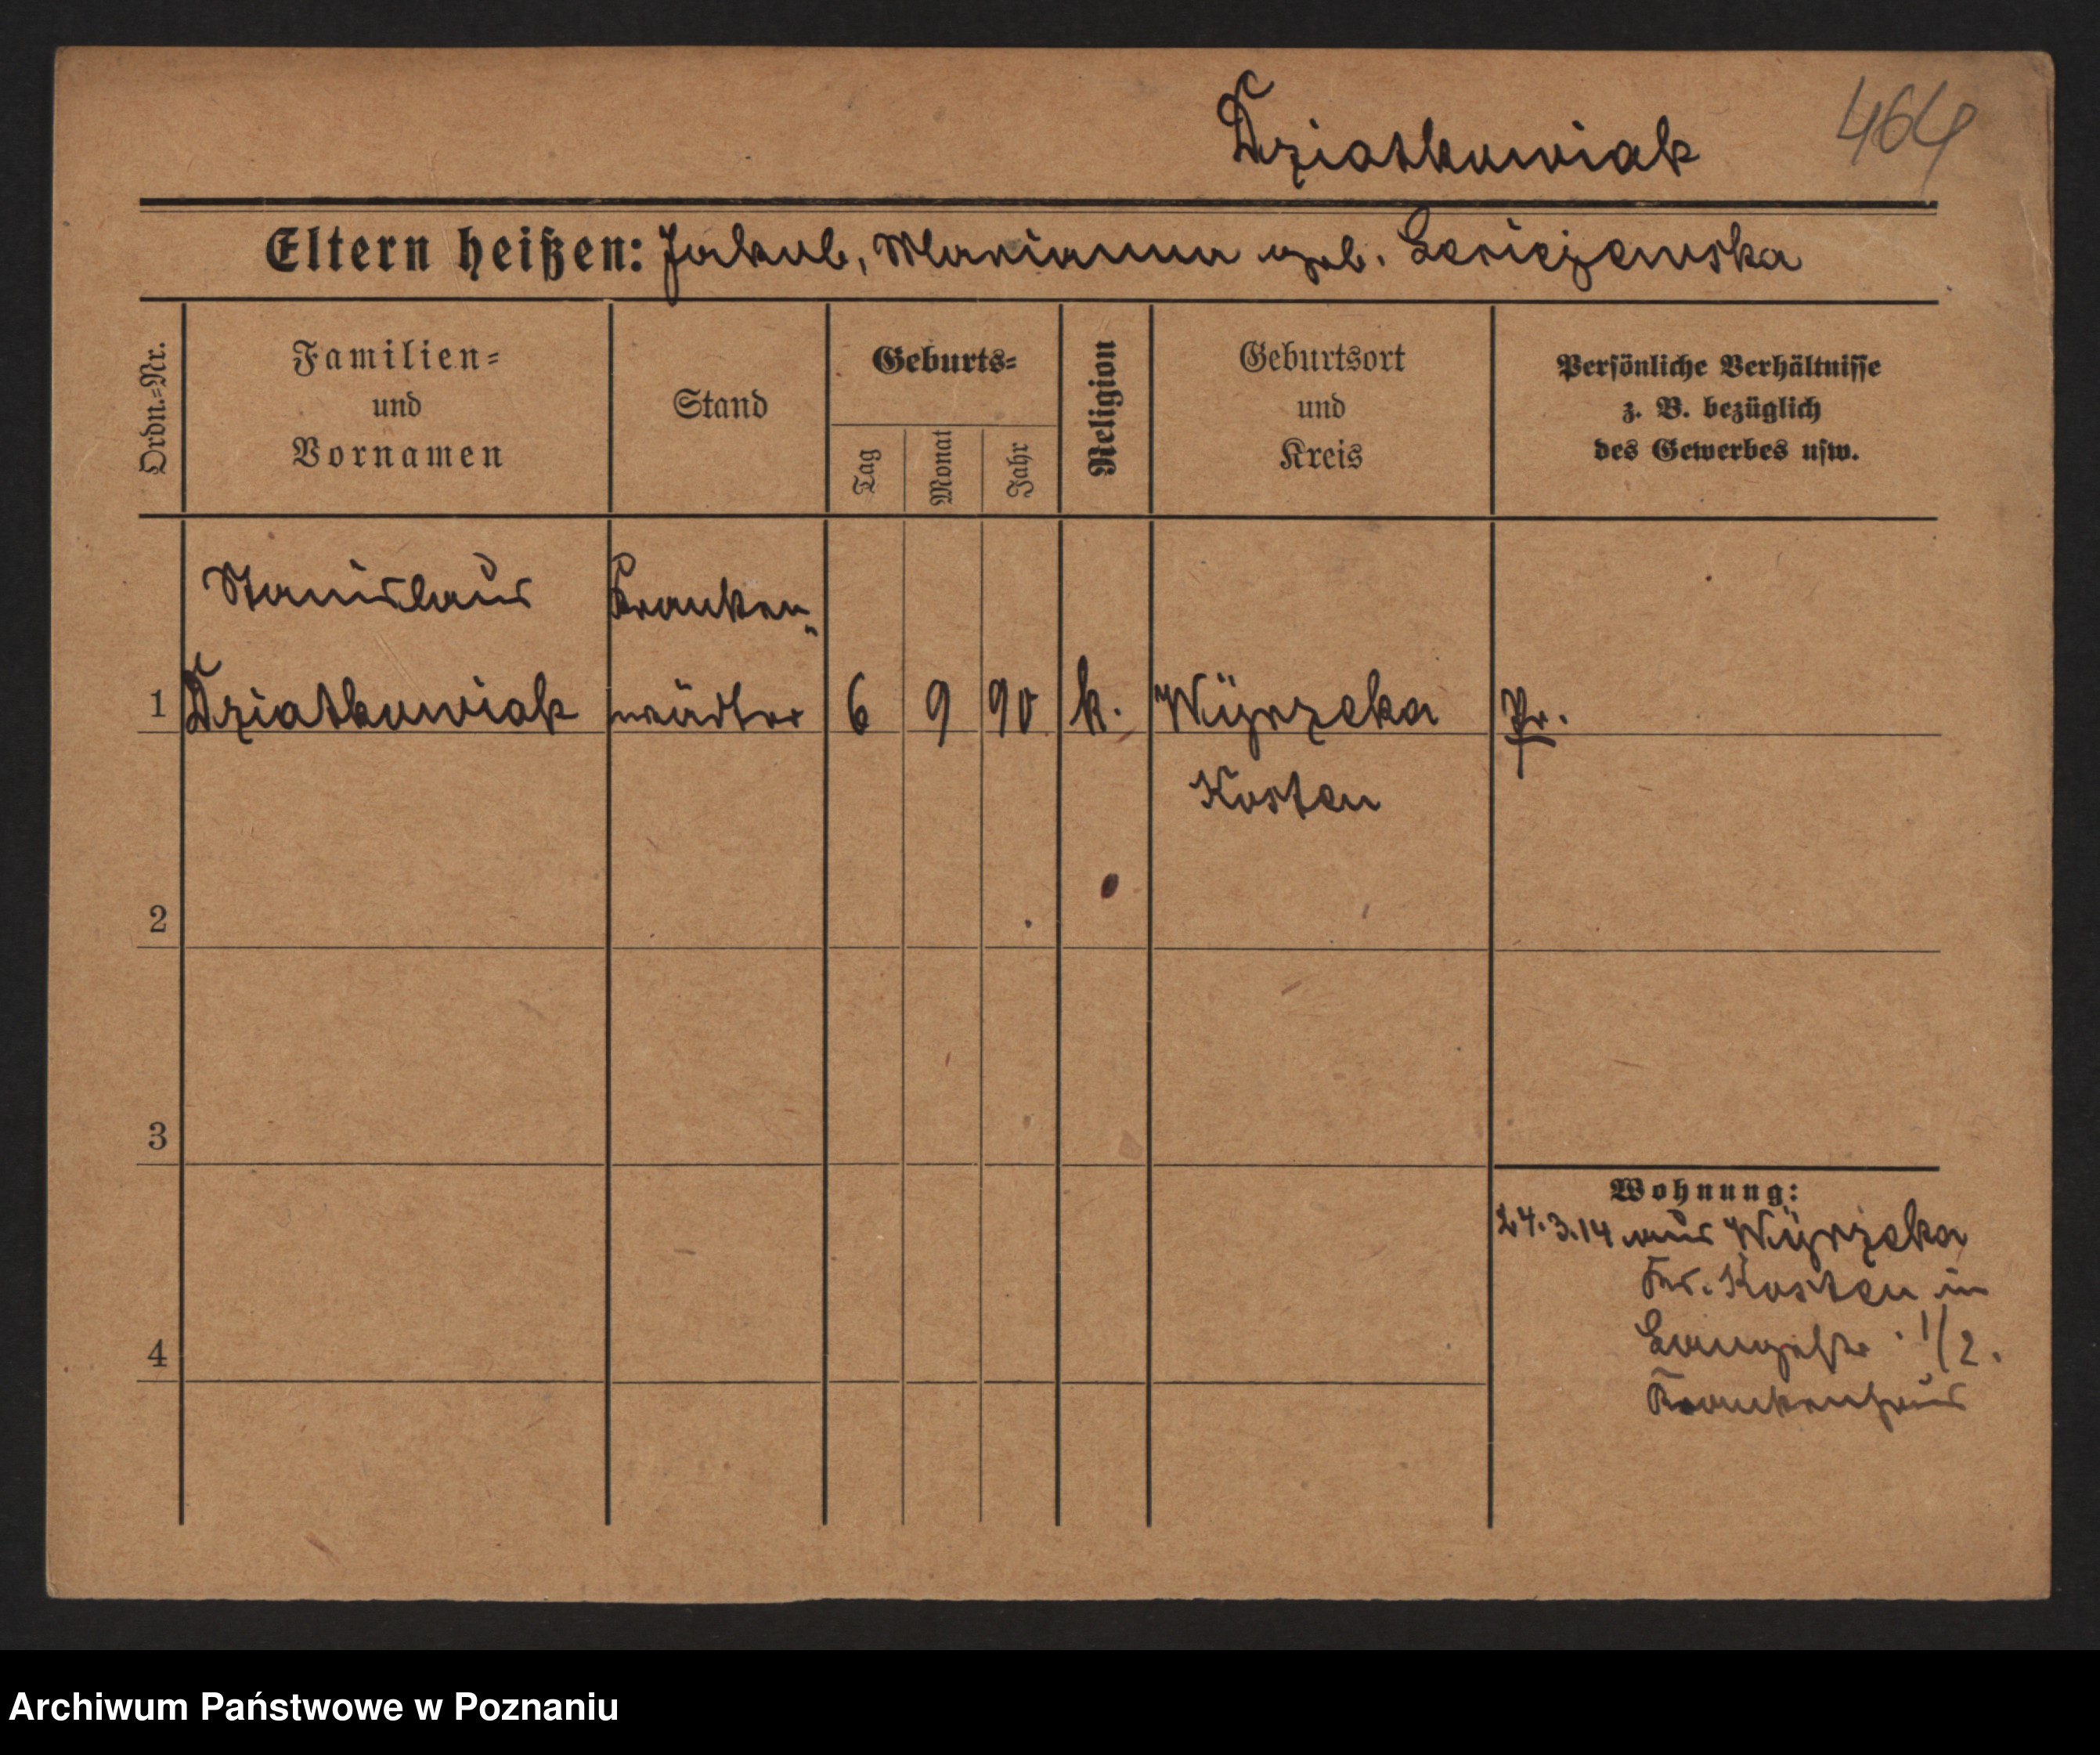 Dziatkowiak 464
Eltern heißen: Jakob, Marianna geb.
Ordn.=Nr.
Familien=
und
Vornamen
Stand
Geburts=
Tag
Monat
Jahr
Religion
Geburtsort
und
Kreis
Persönliche Verhältnisse
z. B. bezüglich
des Gewerbes usw.
Stanislaus Kranken„
1 Dziatkowiak wärter 6 9 90 k. Wyrzeka Pr.
Kosten
2
3
4
Wohnung:
24.3.14 aus Wyrzeka
Krs. Kosten in
Langestr. 1/2.
Krankenhaus
Archiwum Państwowe w Poznaniu